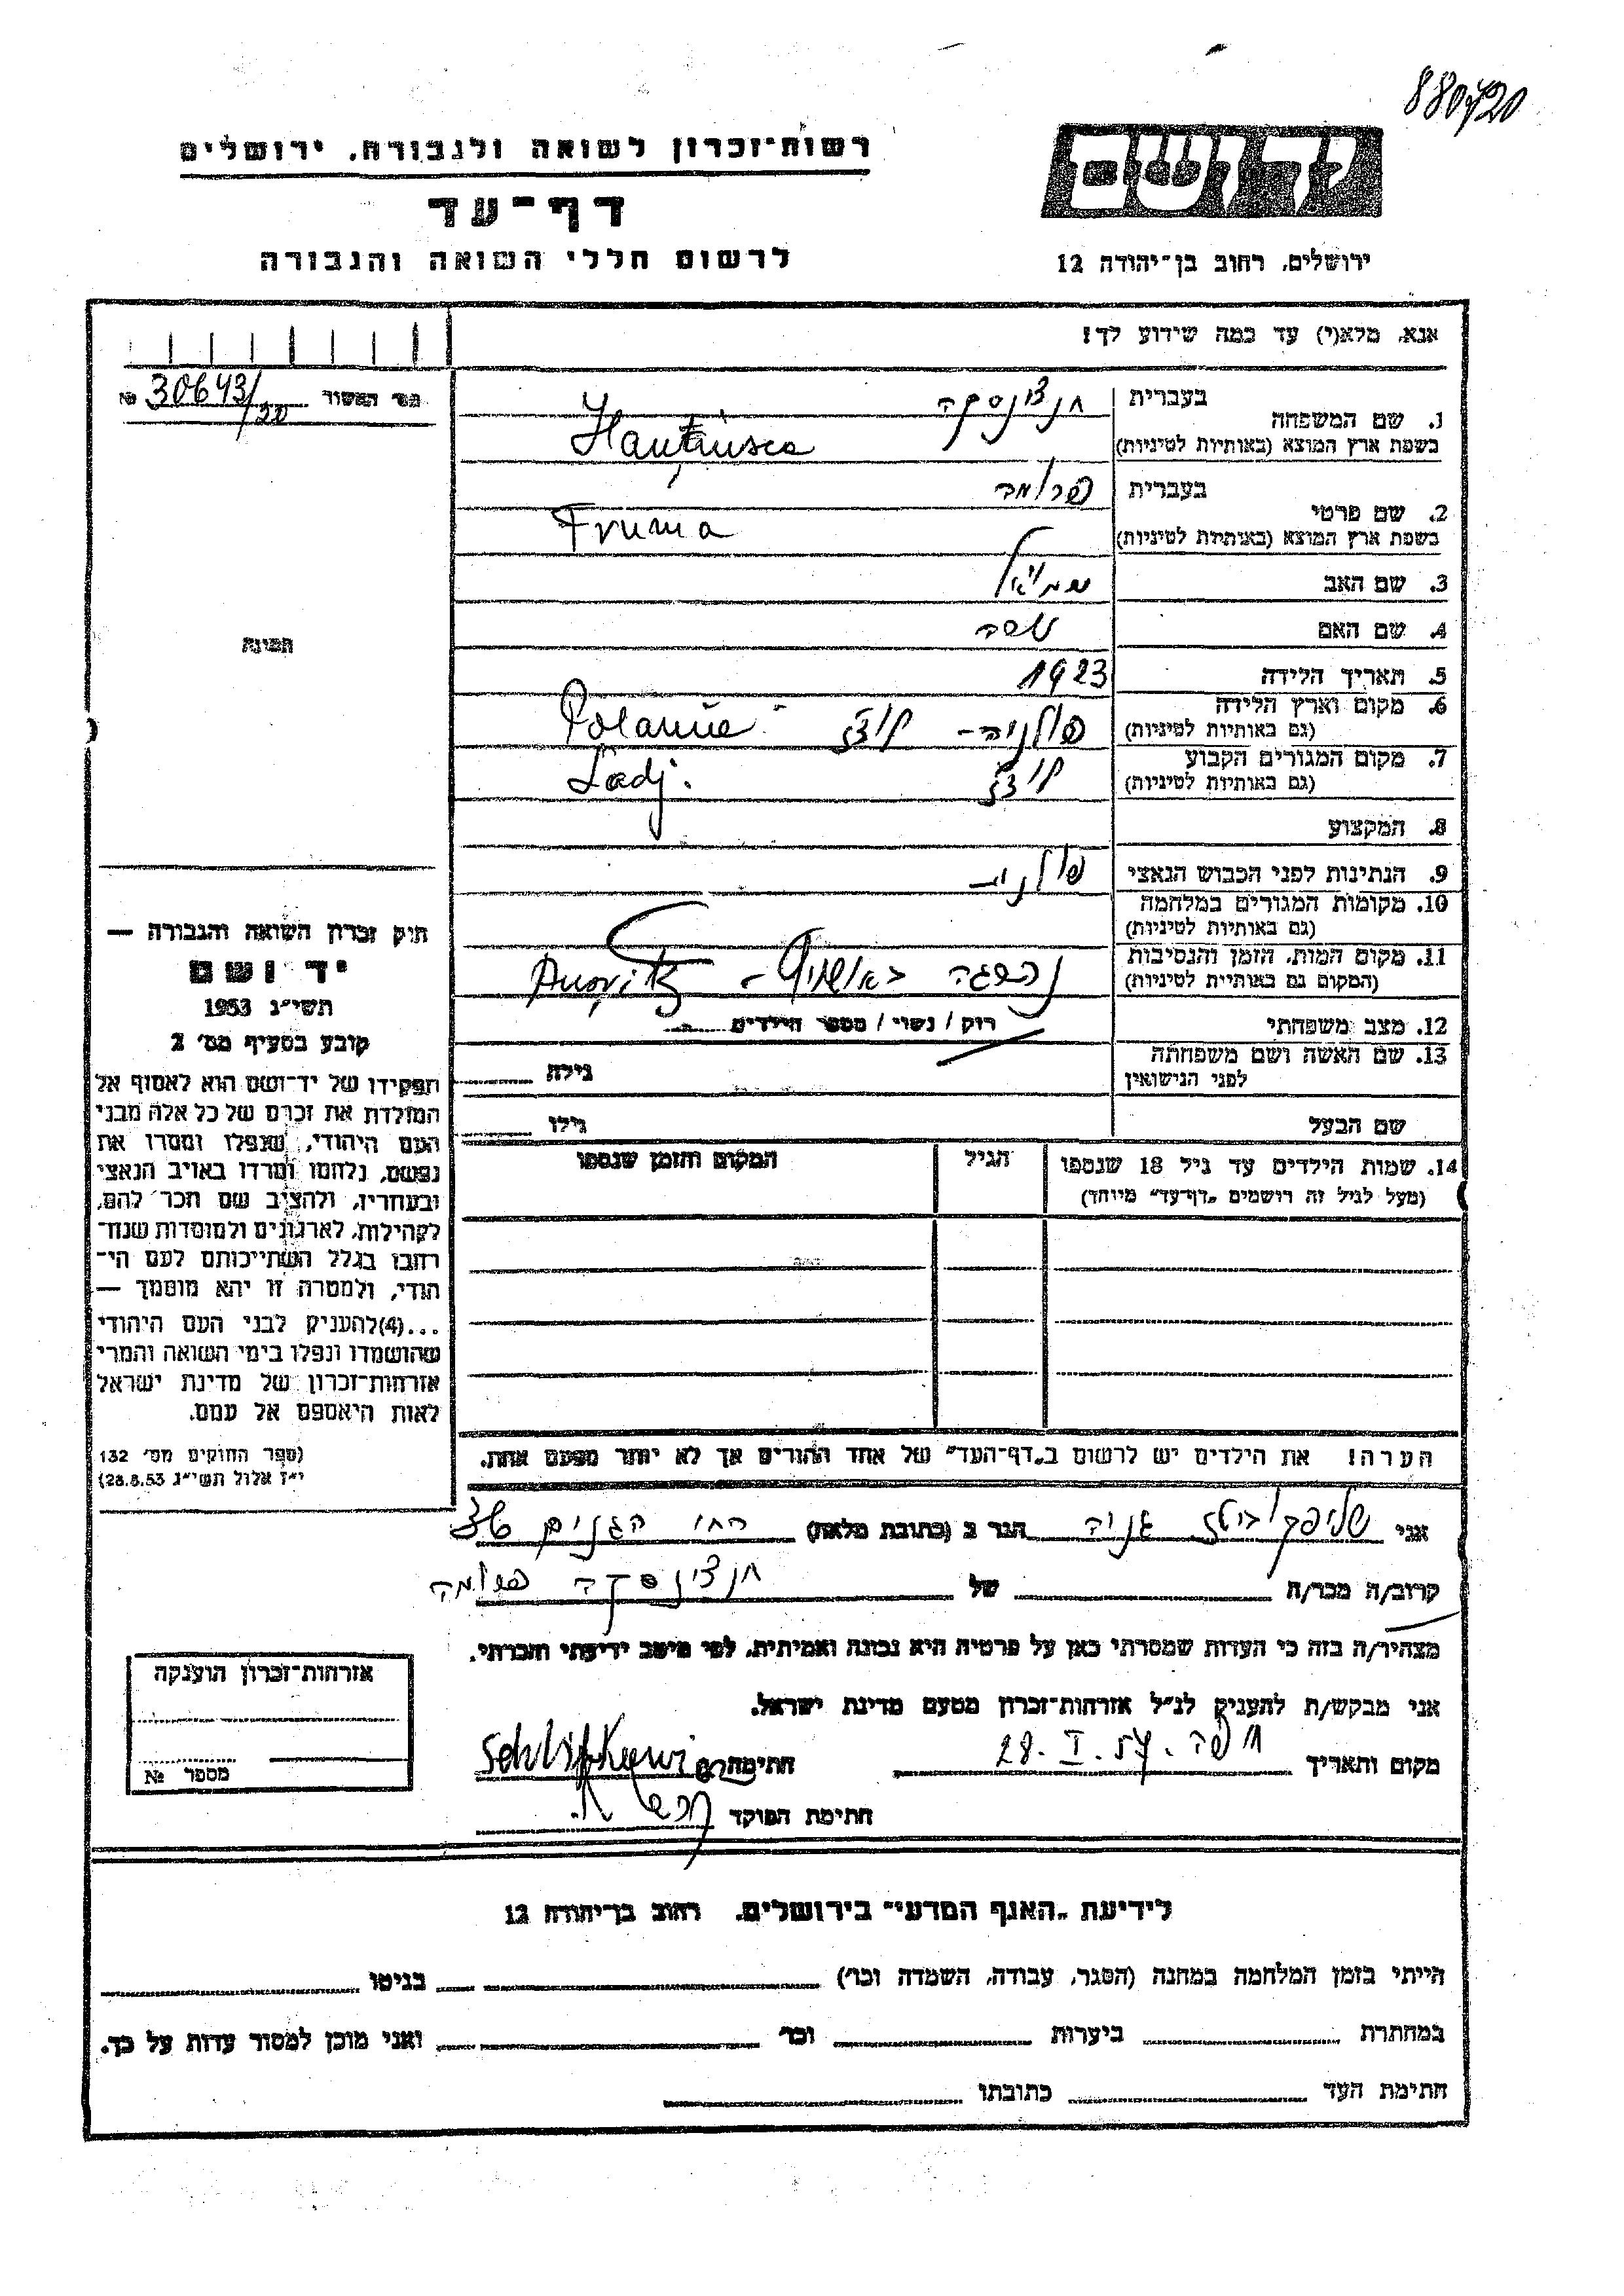 880420
רשות־זכרון לשואה ולגבורה, ירושלים
דף־עד
לרשום חללי השואה והגבורה
יד ושם
ירושלים, רחוב בן־יהודה 12
אנא, מלא(י) עד כמה שידוע לך!
מס' האשור 30643/20 №
1. שם המשפחה
בעברית חנצ'ינסקה
בשפת ארץ המוצא (באותיות לטיניות)
2. שם פרטי
בעברית פרומה
בשפת ארץ המוצא (באותיות לטיניות) Fruma
3. שם האב שמואל
4. שם האם
5. תאריך הלידה 1923
6. מקום וארץ הלידה פולניה - לודז
(גם באותיות לטיניות)
7. מקום המגורים הקבוע לודז
(גם באותיות לטיניות) Lodj.
8. המקצוע
9. הנתינות לפני הכבוש הנאצי פולנית
10. מקומות המגורים במלחמה
(גם באותיות לטיניות)
11. מקום המות, הזמן והנסיבות נספתה באושויץ -
(המקום גם באותיות לטיניות)
12. מצב משפחתי רווק / נשוי / מספר הילדים
13. שם האשה ושם משפחתה
לפני הנישואין גילה
שם הבעל גילו
14. שמות הילדים עד גיל 18 שנספו הגיל המקום והזמן שנספו
(מעל לגיל זה רושמים „דף־עד" מיוחד)
הערה! את הילדים יש לרשום ב„דף־העד" של אחד ההורים אך לא יותר מפעם אחת.
תמונה
חוק זכרון השואה והגבורה —
יד ושם
תשי"ג 1953
קובע בסעיף מס' 2
תפקידו של יד־ושם הוא לאסוף אל
המולדת את זכרם של כל אלה מבני
העם היהודי, שנפלו ומסרו את
נפשם, נלחמו ומרדו באויב הנאצי
ובעוזריו, ולהציב שם וזכר להם,
לקהילות, לארגונים ולמוסדות שנח־
רבו בגלל השתייכותם לעם הי־
הודי, ולמטרה זו יהא מוסמך —
...(4)להעניק לבני העם היהודי
שהושמדו ונפלו בימי השואה והמרי
אזרחות־זכרון של מדינת ישראל
לאות היאספם אל עמם.
(ספר החוקים מס' 132
י"ז אלול תשי"ג 28.8.53)
אני שליפקוביטז אניה הגר ב (כתובת מלאה) רחו הגנים 36
קרוב/ה מכר/ה של חנצ'ינסקה פרומה
מצהיר/ה בזה כי העדות שמסרתי כאן על פרטיה היא נכונה ואמיתית, לפי מיטב ידיעתי והכרתי.
אני מבקש/ת להעניק לנ"ל אזרחות־זכרון מטעם מדינת ישראל.
מקום ותאריך חיפה. 28. I. 57 חתימה
חתימת הפוקד
אזרחות־זכרון הוענקה
מספר №
לידיעת „האגף המדעי" בירושלים, רחוב בן־יהודה 12
הייתי בזמן המלחמה במחנה (הסגר, עבודה, השמדה וכו') בגיטו
במחתרת ביערות וכו' ואני מוכן למסור עדות על כך.
חתימת העד כתובתו